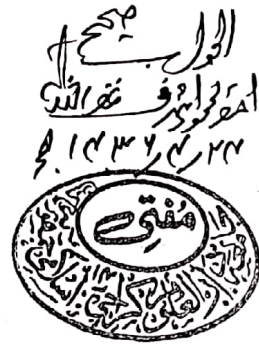 الجواب صحیح
احقر محمود اشرف غفر اللہ لہ
۲۴/۴/۱۴۳۶ھ
مفتی
جامعہ دارالعلوم کراچی